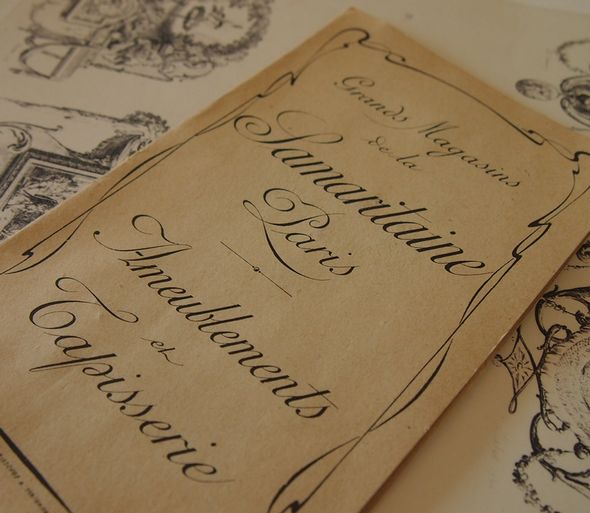 Grands Magasins
de la
Samaritaine
Paris
Ameublements
et
Tapisserie